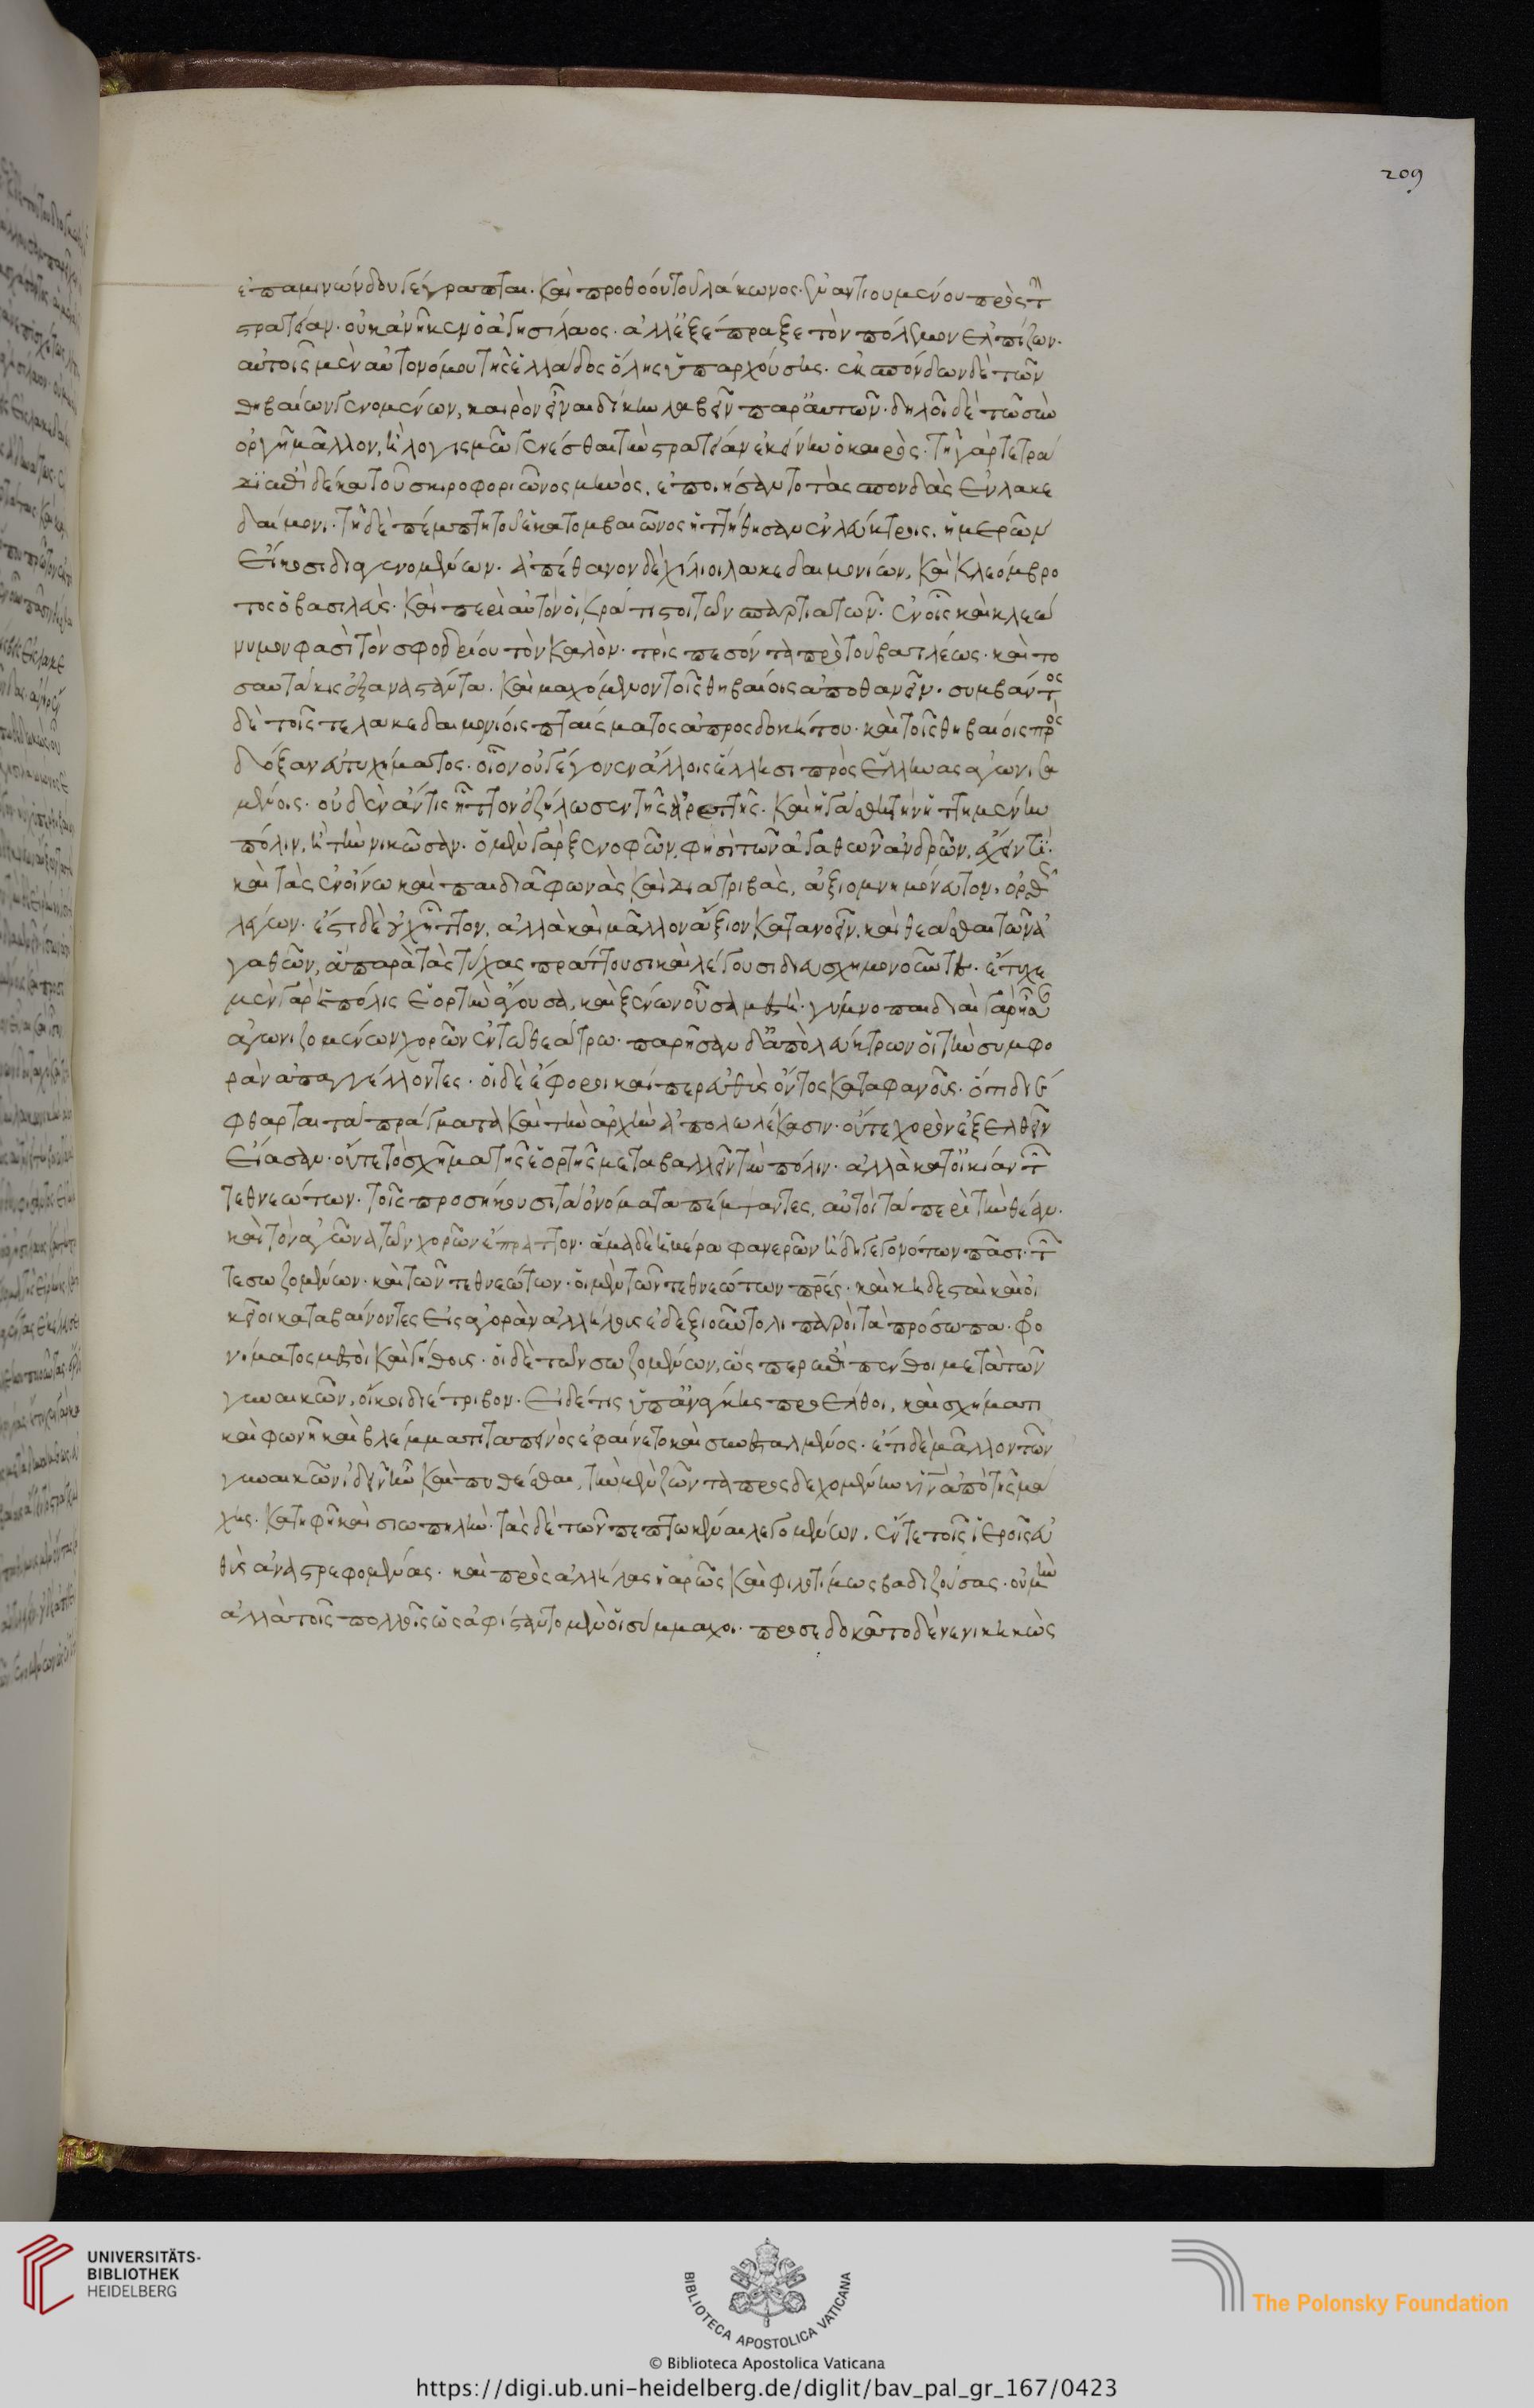 209
ἐπαμινώνδου γέγραπται. καὶ προθόου τοῦ λάκωνος. ἐναντιουμένου πρὸς τὴν
στρατείαν. οὐκ ἀνῆκεν ὁ ἀγησίλαος. ἀλλ' ἐξέπραξε τὸν πόλεμον ἐλπίζων.
αὐτοῖς μὲν αὐτονόμου τῆς ἑλλάδος ὅλης ὑπαρχούσης. ἐκσπόνδων δὲ τῶν
θηβαίων γενομένων, καιρὸν εἶναι δίκην λαβεῖν παρ' αὐτῶν. δηλοῖ δὲ τὸ σὺν
ὀργῇ μᾶλλον, ἢ λογισμῷ γενέσθαι τὴν στρατείαν ἐκείνην ὁ καιρός. τῇ γὰρ τετρά
δι ἐπὶ δέκα τοῦ σκιροφοριῶνος μηνὸς, ἐποιήσαντο τὰς σπονδὰς ἐν λακε
δαίμονι. τῇ δὲ πέμπτῃ τοῦ ἑκατομβαιῶνος ἡττήθησαν ἐν λεύκτροις, ἡμερῶν
εἴκοσι διαγενομένων. ἀπέθανον δὲ χίλιοι λακεδαιμονίων, καὶ κλεόμβρο
τος ὁ βασιλεύς. καὶ περὶ αὐτὸν οἱ κράτιστοι τῶν σπαρτιατῶν. ἐν οἷς καὶ κλεώ
νυμον φασὶ τὸν σφοδρίου τὸν καλὸν. τρὶς πεσόντα πρὸ τοῦ βασιλέως. καὶ το
σαυτάκις ἐξαναστάντα. καὶ μαχόμενον τοῖς θηβαίοις ἀποθανεῖν. συμβάντος
δὲ τοῖς τε λακεδαιμονίοις πταίσματος ἀπροσδοκήτου. καὶ τοῖς θηβαίοις πρὸς
δόξαν εὐτυχήματος. οἷον οὐ γέγονεν ἄλλοις ἕλλησι πρὸς ἕλληνας ἀγωνισα
μένοις. οὐδὲν ἄν τις ἧττον ἐζήλωσεν τῆς ἀρετῆς. καὶ ἠγάσθη τὴν ἡττημένην
πόλιν, ἢ τὴν νικῶσαν. ὁ μὲν γὰρ ξενοφῶν, φησὶ τῶν ἀγαθῶν ἀνδρῶν, ἔχειν τι.
καὶ τὰς ἐν οἴνῳ καὶ παιδιᾷ φωνὰς καὶ διατριβὰς, ἀξιομνημόνευτον. ὀρθῶς
λέγων. ἔστι δὲ οὐχ ἧττον, ἀλλὰ καὶ μᾶλλον ἄξιον κατανοεῖν, καὶ θεᾶσθαι τῶν ἀ
γαθῶν, ἃ παρὰ τὰς τύχας πράττουσι καὶ λέγουσι διευσχημονοῦντες. ἔτυχε
μὲν γὰρ ἡ πόλις ἑορτὴν ἄγουσα, καὶ ξένων οὖσα μεστή. γυμνοπαιδιαὶ γὰρ ἦσαν
ἀγωνιζομένων χορῶν ἐν τῷ θεάτρῳ. παρῆσαν δ' ἀπὸ λεύκτρων οἱ τὴν συμφο
ρὰν ἀπαγγέλλοντες. οἱ δὲ ἔφοροι καίπερ εὐθὺς ὄντος καταφανοῦς. ὅτι διέ
φθαρται τὰ πράγματα καὶ τὴν ἀρχὴν ἀπολωλέκασιν. οὔτε χορὸν ἐξελθεῖν
εἴασαν. οὔτε τὸ σχῆμα τῆς ἑορτῆς μεταβαλλεῖν τὴν πόλιν. ἀλλὰ κατ' οἰκίαν τῶν
τεθνεώτων. τοῖς προσήκουσι τὰ ὀνόματα πέμψαντες, αὐτοὶ τὰ περὶ τὴν θέαν.
καὶ τὸν ἀγῶνα τῶν χορῶν ἔπραττον. ἅμα δὲ ἡμέρᾳ φανερῶν ἤδη γεγονότων πᾶσι. τῶν
τε σωζομένων. καὶ τῶν τεθνεώτων. οἱ μὲν τῶν τεθνεώτων πατέρες. καὶ κηδεσταὶ καὶ οἰ
κεῖοι καταβαίνοντες εἰς ἀγορὰν ἀλλήλους ἐδεξιοῦντο λιπαροὶ τὰ πρόσωπα. φρο
νήματος μεστοὶ καὶ γήθους. οἱ δὲ τῶν σωζομένων, ὥσπερ ἐπὶ πένθει μετὰ τῶν
γυναικῶν, οἴκοι διέτριβον. εἰ δέ τις ὑπ' ἀνάγκης προέλθοι, καὶ σχήματι
καὶ φωνῇ καὶ βλέμματι ταπεινὸς ἐφαίνετο καὶ συνεσταλμένος. ἔτι δὲ μᾶλλον τῶν
γυναικῶν ἰδεῖν ἦν καὶ πυθέσθαι, τὴν μὲν ζῶντα προσδεχομένην υἱὸν ἀπὸ τῆς μά
χης. κατηφῆ καὶ σιωπηλήν. τὰς δὲ τῶν πεπτωκέναι λεγομένων, ἔν τε τοῖς ἱεροῖς εὐ
θὺς ἀναστρεφομένας. καὶ πρὸς ἀλλήλας ἱλαρῶς καὶ φιλοτίμως βαδιζούσας. οὐ μὴν
ἀλλὰ τοῖς πολλοῖς ὡς ἀφίσταντο μὲν οἱ σύμμαχοι. προσεδοκᾶτο δὲ νενικηκὼς
UNIVERSITÄTS-
BIBLIOTHEK
HEIDELBERG
BIBLIOTECA APOSTOLICA VATICANA
The Polonsky Foundation
© Biblioteca Apostolica Vaticana
https://digi.ub.uni-heidelberg.de/diglit/bav_pal_gr_167/0423